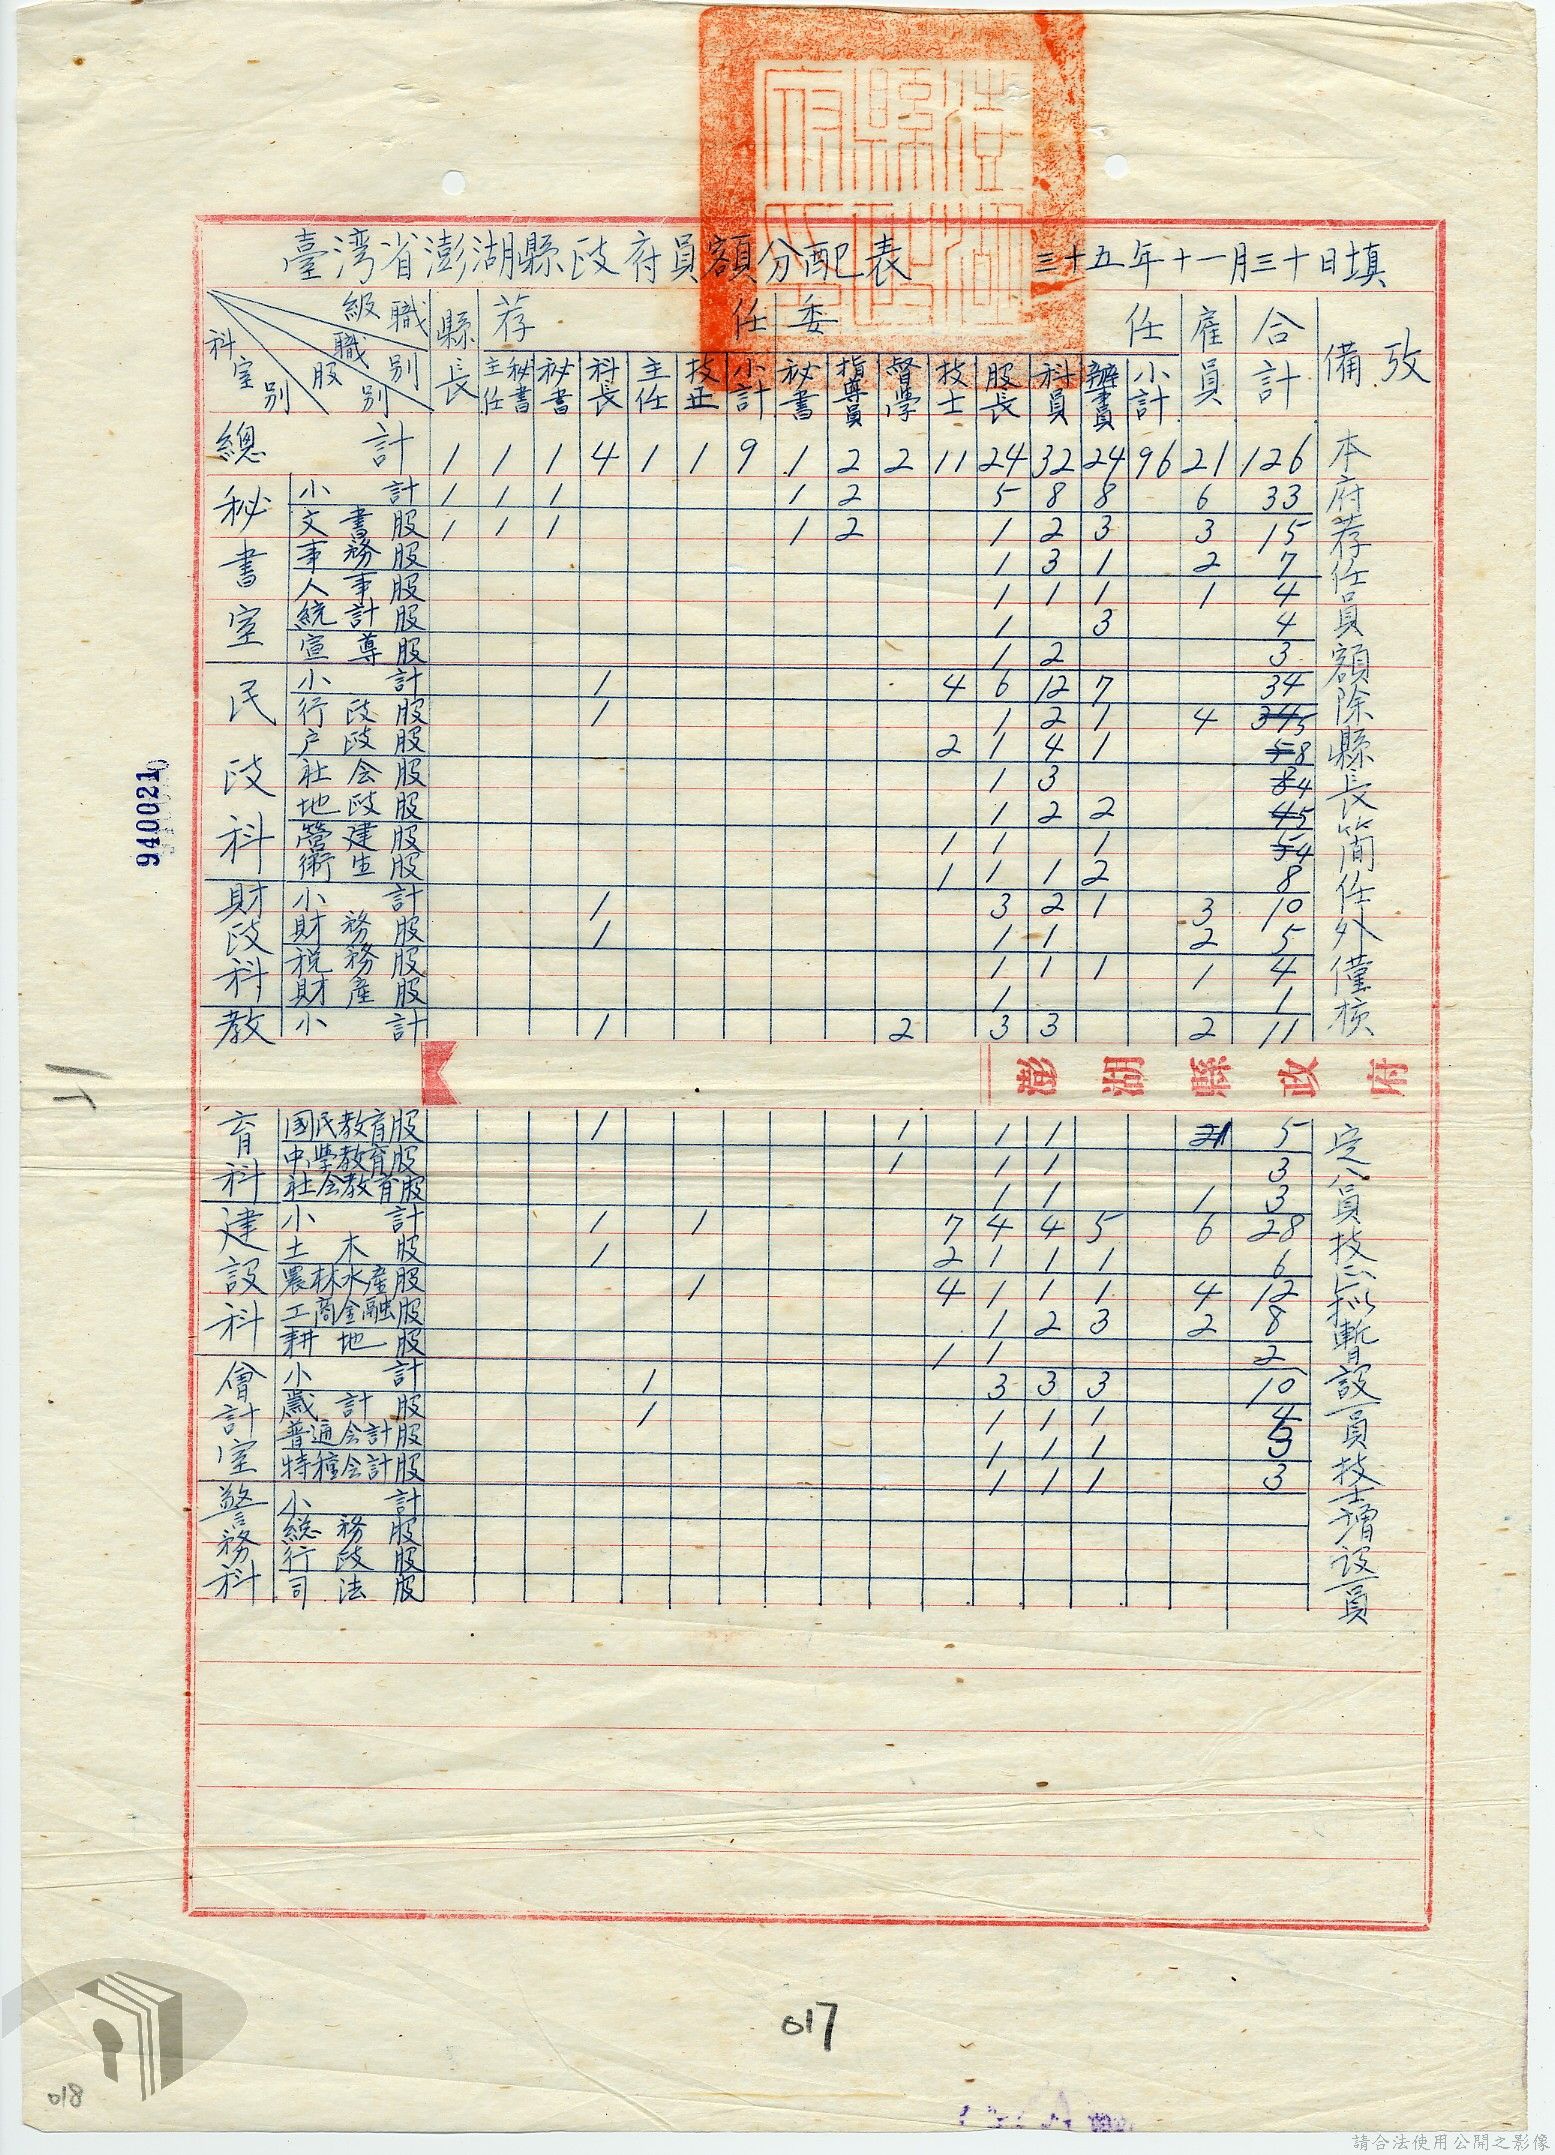 臺湾省澎湖縣政府員額分配表 三十五年十一月三十日填
級職 職別 股別 科室別 縣長 荐任 委任 雇員 合計 備攷
主任秘書 秘書 科長 主任 技正 小計 秘書 指導員 督學 技士 股長 科員 辦事員 小計
總計 1 1 1 4 1 1 9 1 2 2 11 24 32 24 96 21 126
秘書室
小計 1 1 1 1 2 5 8 8 6 33
文書股 1 1 1 1 2 1 2 3 3 15
事務股 1 3 1 2 7
人事股 1 1 1 1 4
統計股 1 3 4
宣導股 1 2 3
民政科
小計 1 4 6 12 7 34
行政股 1 1 2 1 4 5
戶政股 2 1 4 1 8
社会股 1 3 4
地政股 1 2 2 5
營建股 1 1 1 4
衛生股 1 1 1 2 8
財政科
小計 1 3 2 1 3 10
財務股 1 1 1 2 5
税務股 1 1 1 1 4
財產股 1 1
教
小計 1 2 3 3 2 11
澎湖縣政府
育科
國民教育股 1 1 1 1 1 5
中學教育股 1 1 1 3
社会教育股 1 1 1 3
建設科
小計 1 1 7 4 4 5 6 28
土木股 1 2 1 1 1 6
農林水產股 1 4 1 1 1 4 12
工商金融股 1 2 3 2 8
耕地股 1 1 2
會計室
小計 1 3 3 3 10
歲計股 1 1 1 1 4
普通会計股 1 1 1 3
特種会計股 1 1 1 3
警務科
小計
総務股
行政股
司法股
本府荐任員額除縣長簡任外僅核
定八員技正拟暫設一員技士增設一員
940021
017
018
請合法使用公開之影像